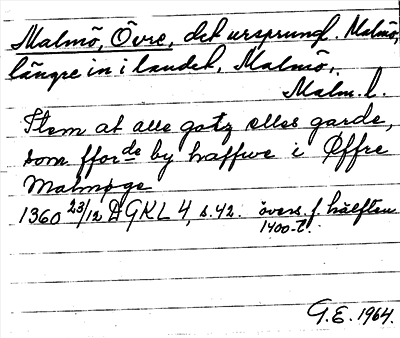 Malmö, Övre, det ursprungl. Malmö,
längre in i landet, Malmö,
Malm. l.
Item at alle gotz elles garde,
som fforde by haffwe i Øffre
Malmøge
1360 23/12 DGKL 4, s. 42. övers. f. hälften
1400-t.
G.E. 1964.